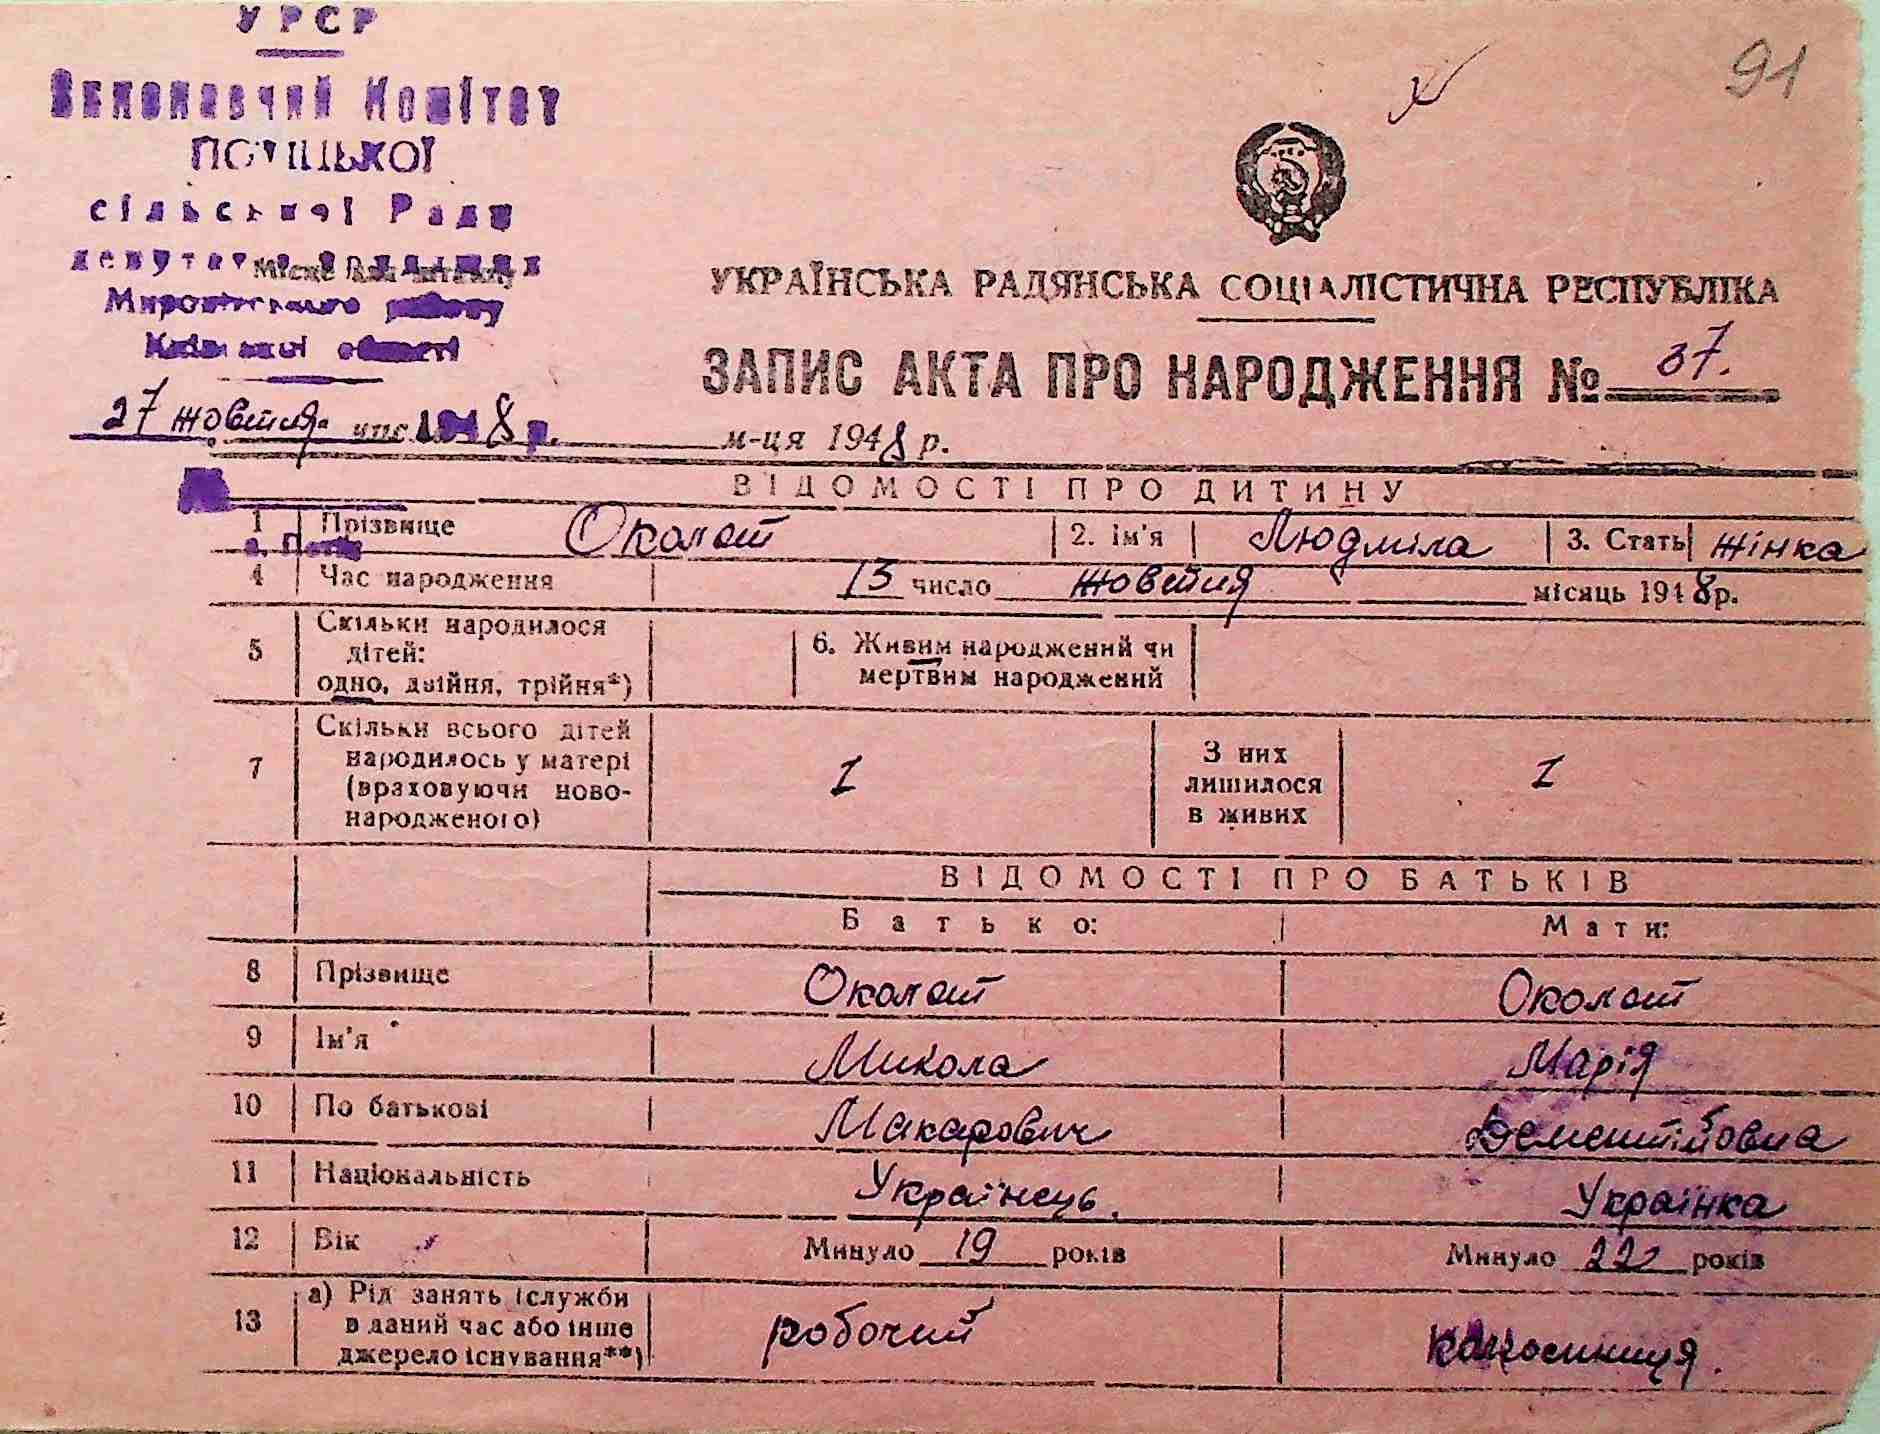 91
УРСР
Виконавчий Комітет
ПОТІЦЬКОЇ
сільської Ради
депутатів трудящих
Місце для штампу
Миронівського району
Київської області
27 жовтня 1948 р.
м-ця 1948 р.
с. Потік
УКРАЇНСЬКА РАДЯНСЬКА СОЦІАЛІСТИЧНА РЕСПУБЛІКА
ЗАПИС АКТА ПРО НАРОДЖЕННЯ № 37.
ВІДОМОСТІ ПРО ДИТИНУ
1 Прізвище Околот 2. Ім'я Людміла 3. Стать жінка
4 Час народження 13 число жовтня місяць 1948 р.
5 Скільки народилося дітей: одно, двійня, трійня*) 6. Живим народжений чи мертвим народжений
7 Скільки всього дітей народилось у матері (враховуючи новонародженого) 1 З них лишилося в живих 1
ВІДОМОСТІ ПРО БАТЬКІВ
Батько: Мати:
8 Прізвище Околот Околот
9 Ім'я Микола Марія
10 По батькові Макарович Дементійовна
11 Національність Українець. Українка
12 Вік Минуло 19 років Минуло 22 років
13 а) Рід занять (служби в даний час або інше джерело існування**) робочий колгосниця.